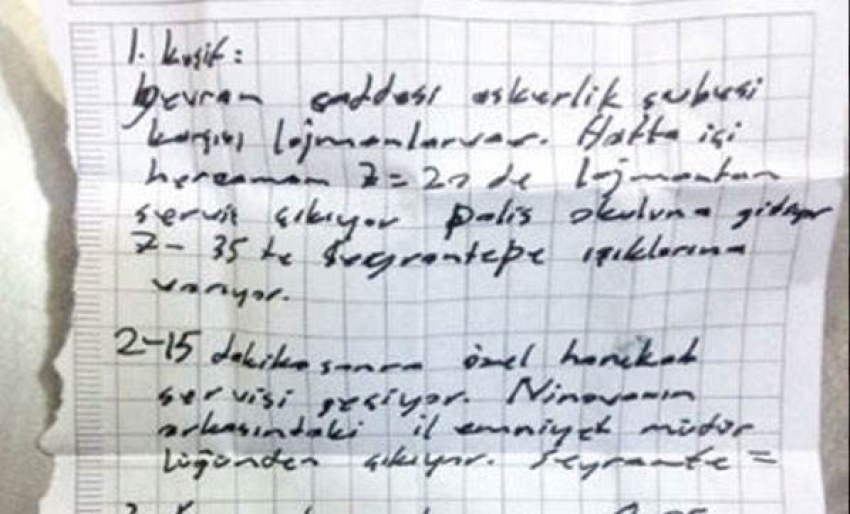 1. keşif:
Bevran caddesi askerlik şubesi
karşısı lojmanlar var. Hafta içi
her zaman 7=20 de lojmandan
servis çıkıyor polis okuluna gidiyor
7- 35 te Seyrantepe ışıklarına
varıyor.
2-15 dakika sonra özel harekat
servisi geçiyor. Ninovanın
arkasındaki il emniyet müdür
lüğünden çıkıyor. Seyrante =